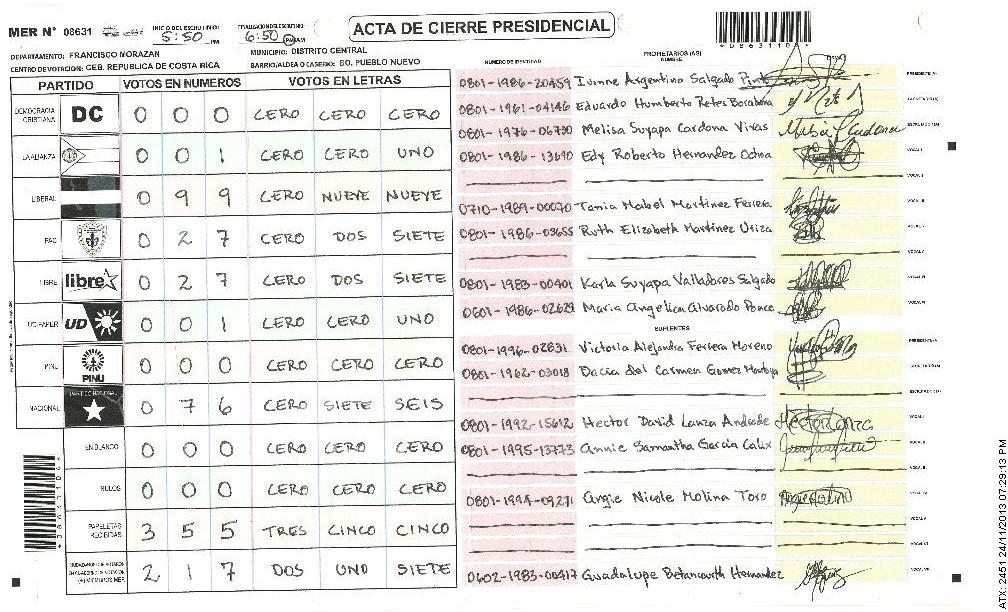 MER N° 08631
INICIO DEL ESCRUTINIO:
5:50 PM
FINALIZACION ESCRUTINIO:
6:50 PM AM
ACTA DE CIERRE PRESIDENCIAL
*08631104*
DEPARTAMENTO: FRANCISCO MORAZAN
MUNICIPIO: DISTRITO CENTRAL
CENTRO DE VOTACION: CEB. REPUBLICA DE COSTA RICA
BARRIO/ALDEA O CASERIO: BO. PUEBLO NUEVO
PARTIDO VOTOS EN NUMEROS VOTOS EN LETRAS
DEMOCRACIA CRISTIANA DC 0 0 0 CERO CERO CERO
LA ALIANZA 0 0 1 CERO CERO UNO
LIBERAL 0 9 9 CERO NUEVE NUEVE
PAC 0 2 7 CERO DOS SIETE
LIBRE libre 0 2 7 CERO DOS SIETE
UD-FAPER UD 0 0 1 CERO CERO UNO
PINU PINU 0 0 0 CERO CERO CERO
NACIONAL PARTIDO NACIONAL 0 7 6 CERO SIETE SEIS
EN BLANCO 0 0 0 CERO CERO CERO
NULOS 0 0 0 CERO CERO CERO
PAPELETAS RECIBIDAS 3 5 5 TRES CINCO CINCO
CIUDADANOS QUE VOTARON EN CUADERNO DE VOTACION (+) MIEMBROS MER 2 1 7 DOS UNO SIETE
NUMERO DE IDENTIDAD PROPIETARIOS (AS) NOMBRE FIRMA
0801-1986-20459 Ivonne Argentina Salgado Pinto PRESIDENTE(A)
0801-1961-04146 Eduardo Humberto Retes Barahona SECRETARIO(A)
0801-1976-06730 Melisa Suyapa Cardona Vivas Melisa S Cardona ESCRUTADOR(A)
0801-1986-13690 Edy Roberto Hernandez Ochoa VOCAL I
VOCAL II
0710-1989-00070 Tania Mabel Martinez Ferrera VOCAL III
0801-1986-03655 Ruth Elizabeth Martinez Uriza VOCAL IV
VOCAL V
0801-1983-00401 Karla Suyapa Valladares Salgado VOCAL VI
0601-1986-02629 Maria Angelica Alvarado Ponce VOCAL VII
SUPLENTES
0801-1996-02831 Victoria Alejandra Ferrera Moreno PRESIDENTE(A)
0801-1962-03018 Dacia del Carmen Gomez Montoya SECRETARIO(A)
ESCRUTADOR(A)
0801-1992-15612 Hector David Lanza Andrade Hector Lanza VOCAL I
0801-1995-13773 Annie Samantha Garcia Calix VOCAL II
VOCAL III
0801-1994-09271 Angie Nicole Molina Toro VOCAL IV
VOCAL V
VOCAL VI
0602-1983-00417 Guadalupe Betancourth Hernandez VOCAL VII
*08631104*
ATX: 2451 24/11/2013 07:29:13 PM